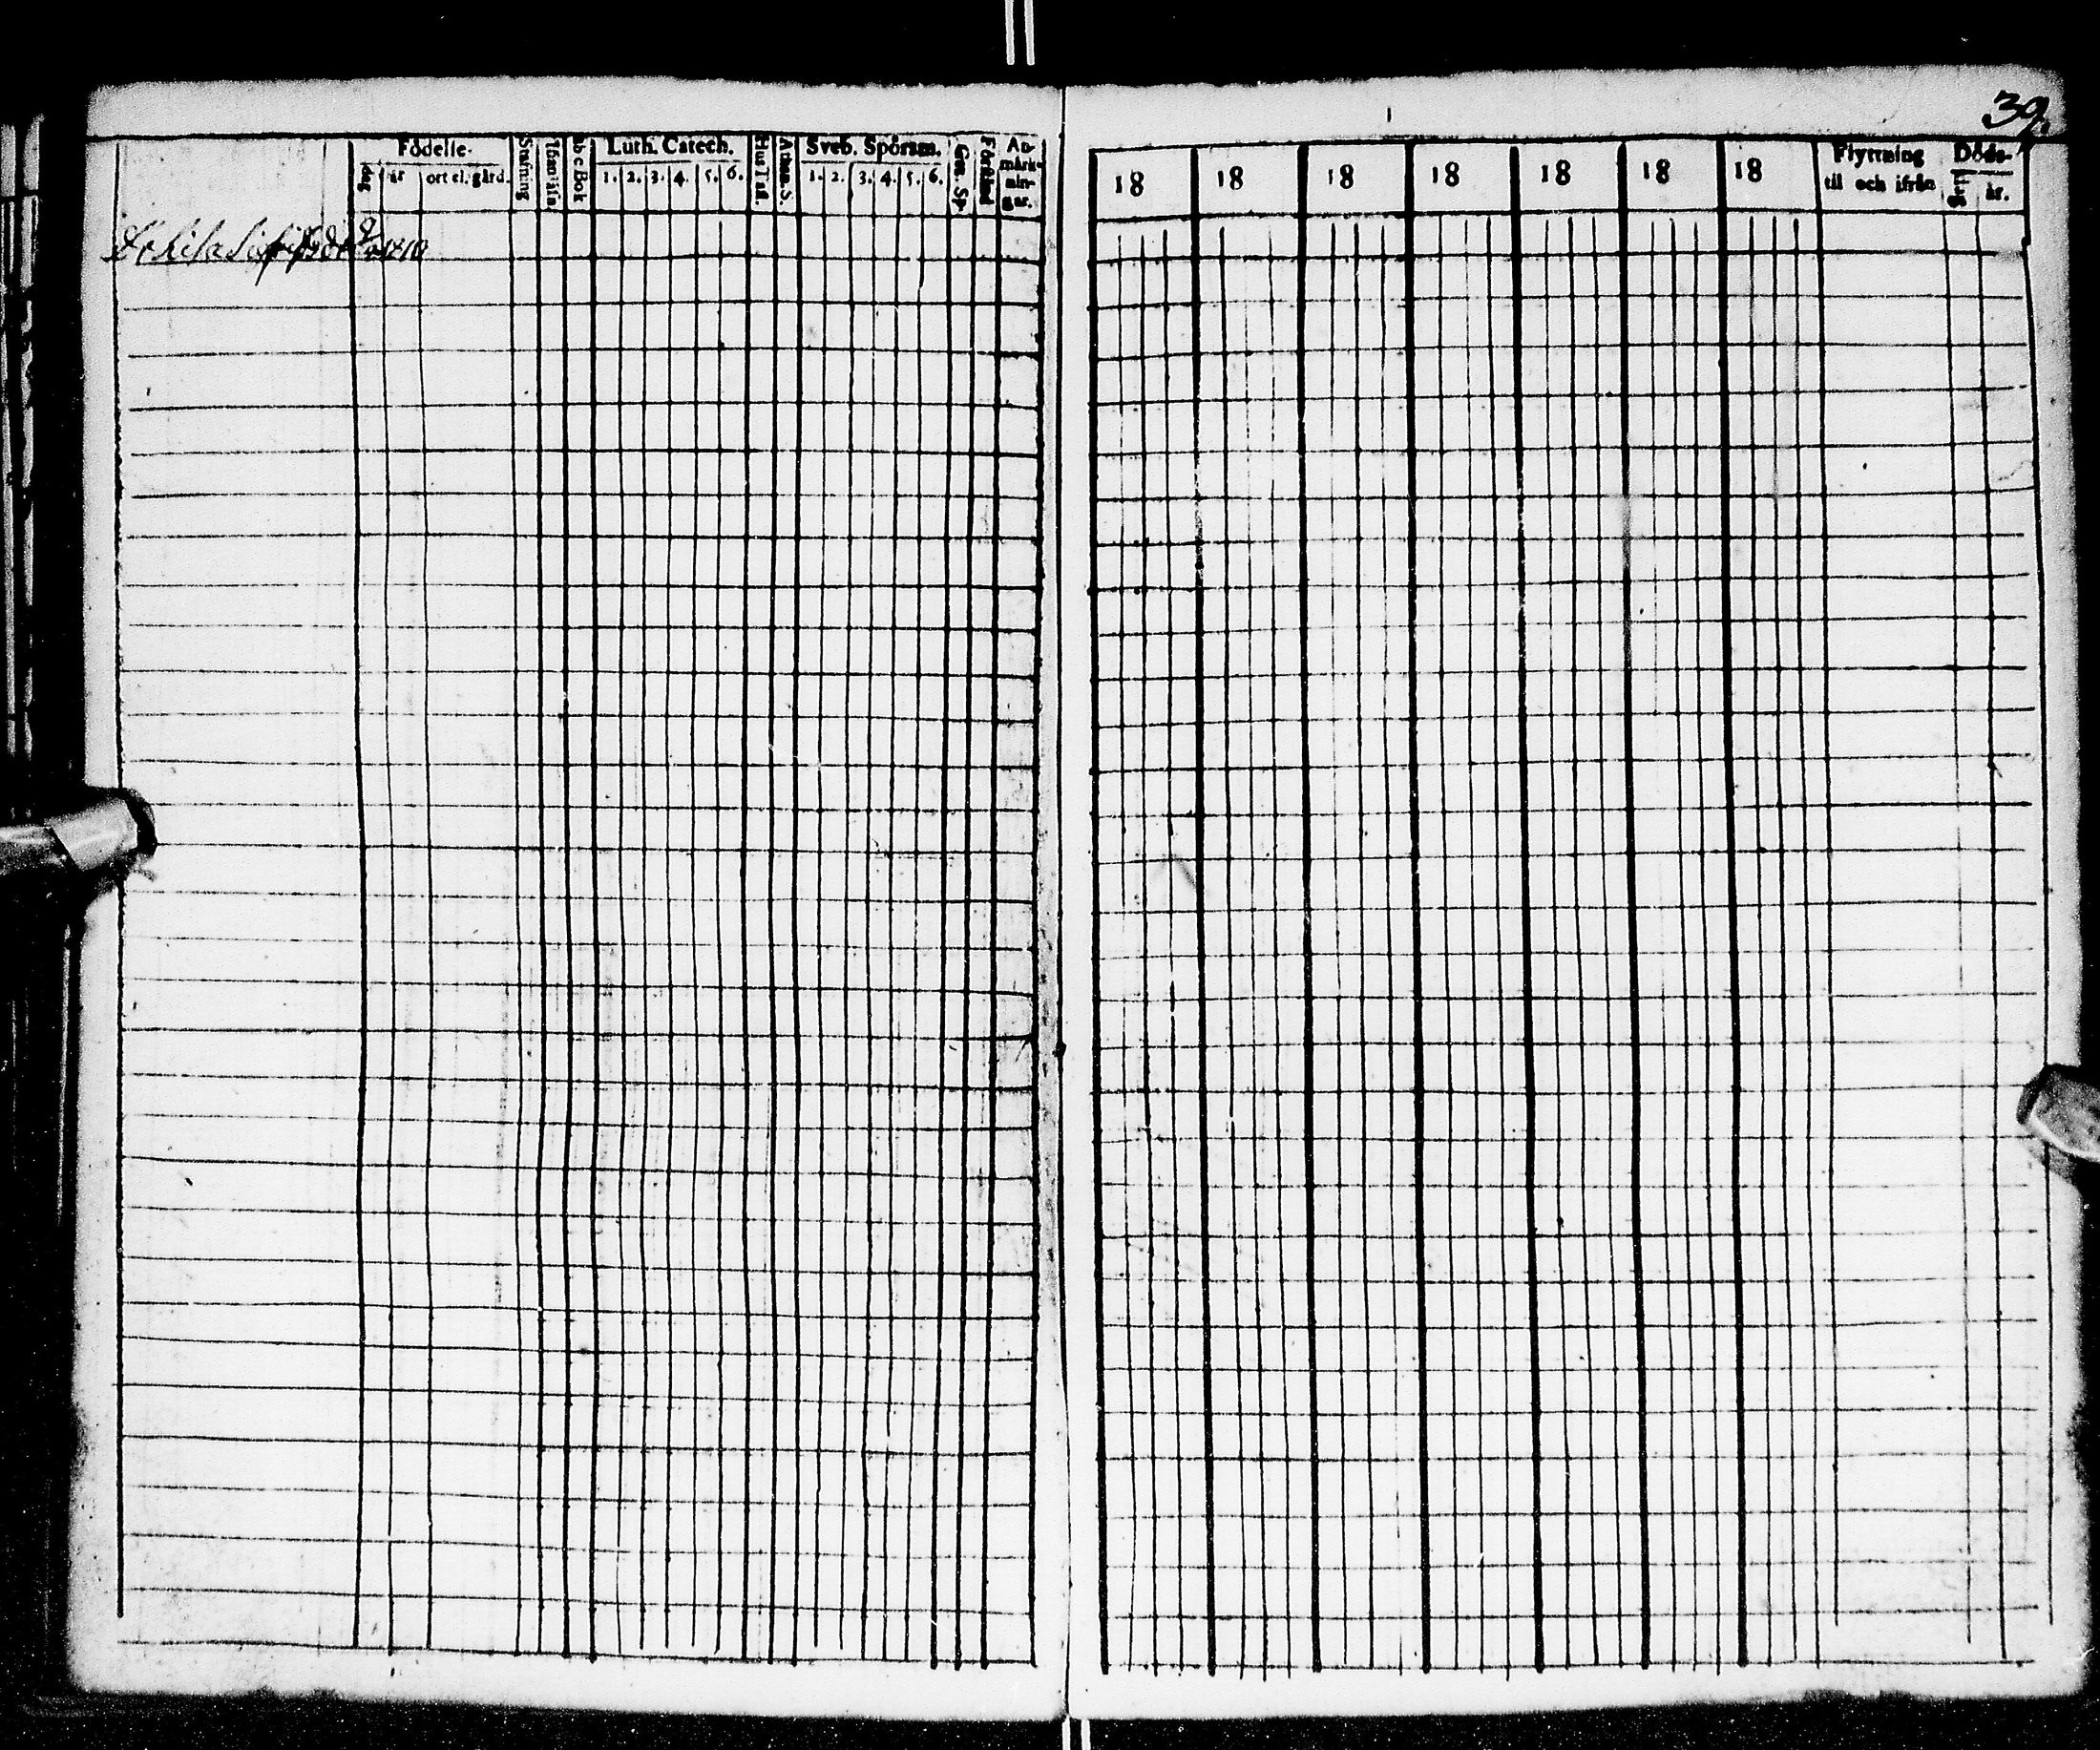 39.
Födelse-
dag
år
ort el. gård.
Stafning
Abc Bok
Luth. Catech.
1. 2. 3. 4. 5. 6.
Hus Tafl.
Athan. S.
Sveb. Spörsm.
1. 2. 3. 4. 5. 6.
Förstånd
An-
märk-
nin-
gar.
18 18 18 18 18 18 18
Flyttning
til och ifrån
Döds-
dag
år.
1810